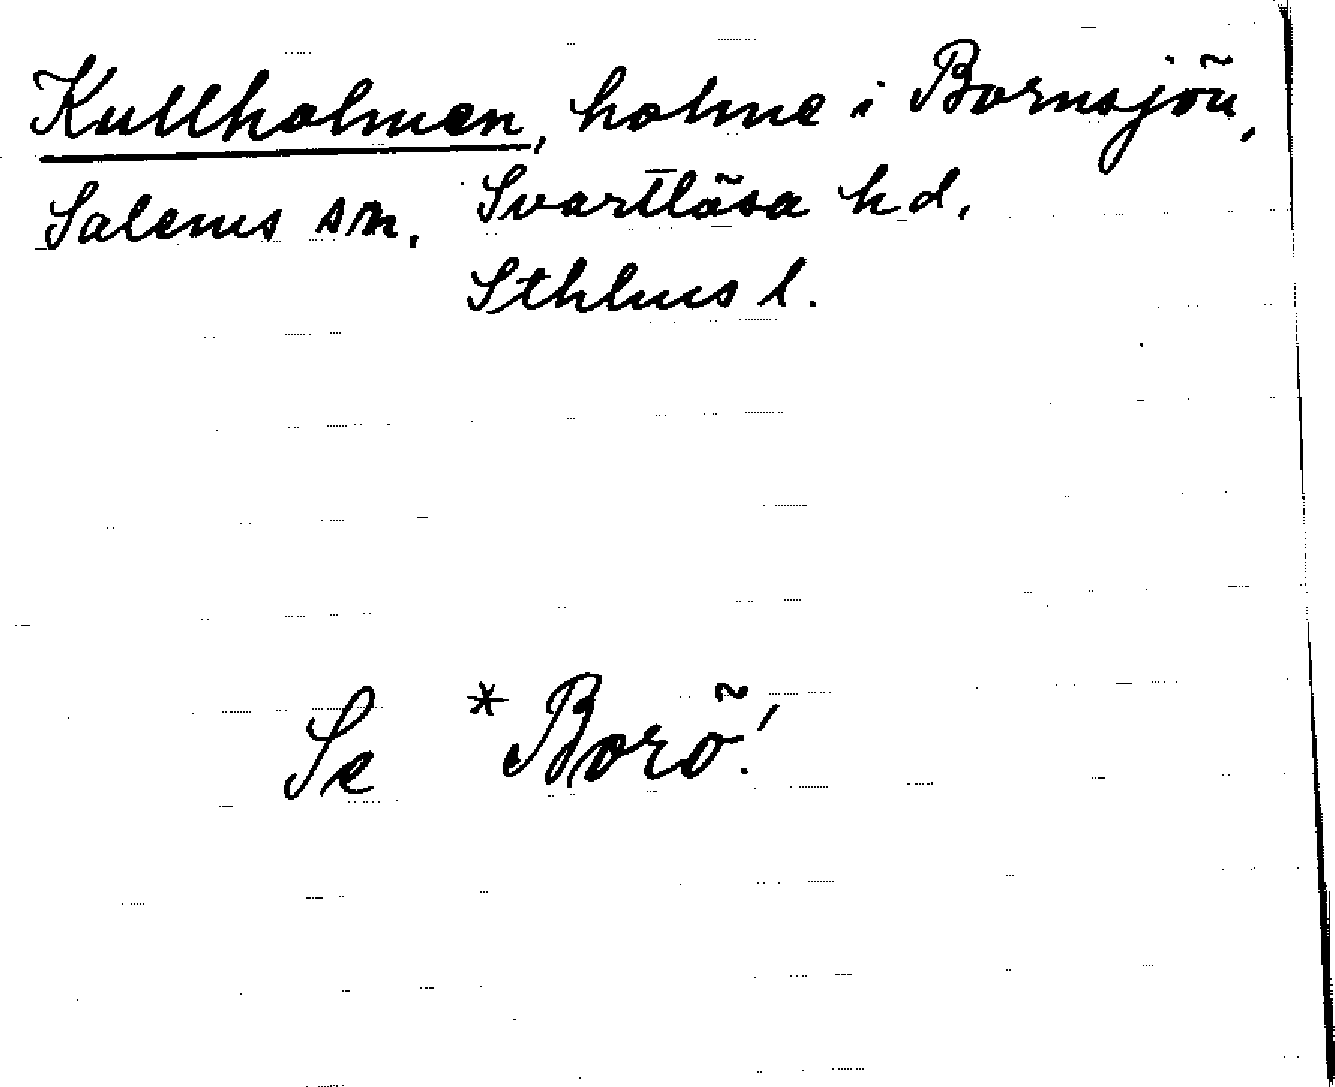 Kullholmen, holme i Bornsjön,
Salems sn. Svartlösa hd.
Sthlms l.
Se *Borö!